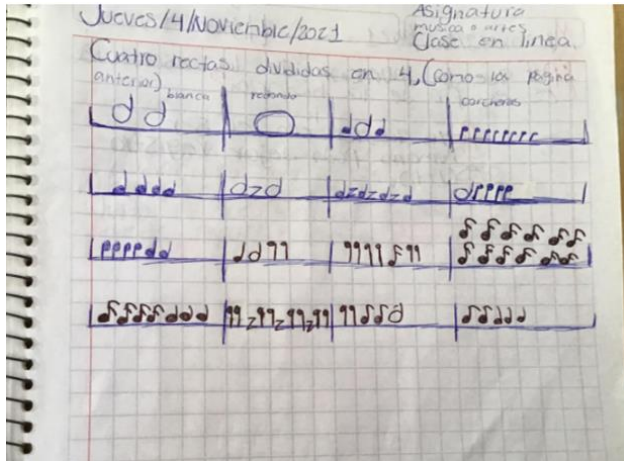 Jueves/4/Noviembre/2021
Asignatura
musica o artes
Clase en linea.
Cuatro rectas divididas en 4, (como la pagina
anterior)
blanca
redondo
corcheas